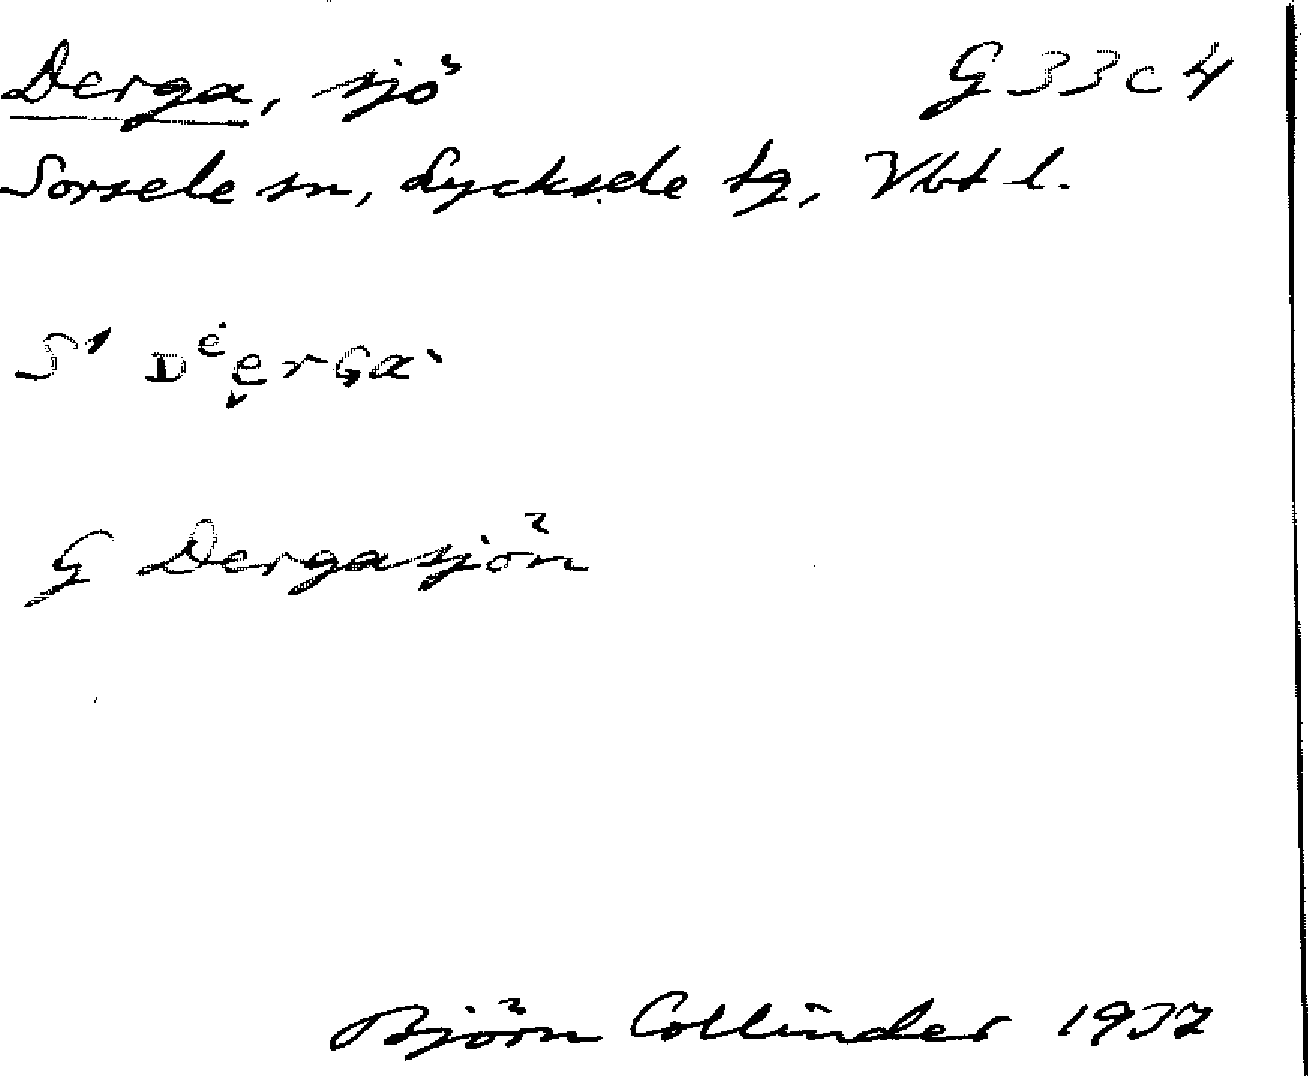 Derga, sjö G 33 c 4
Sorsele sn, Lycksele tg, Vbt l.
S' ᴅᵉ̇e̬rɢa`
G Dergasjön
Björn Collinder 1937